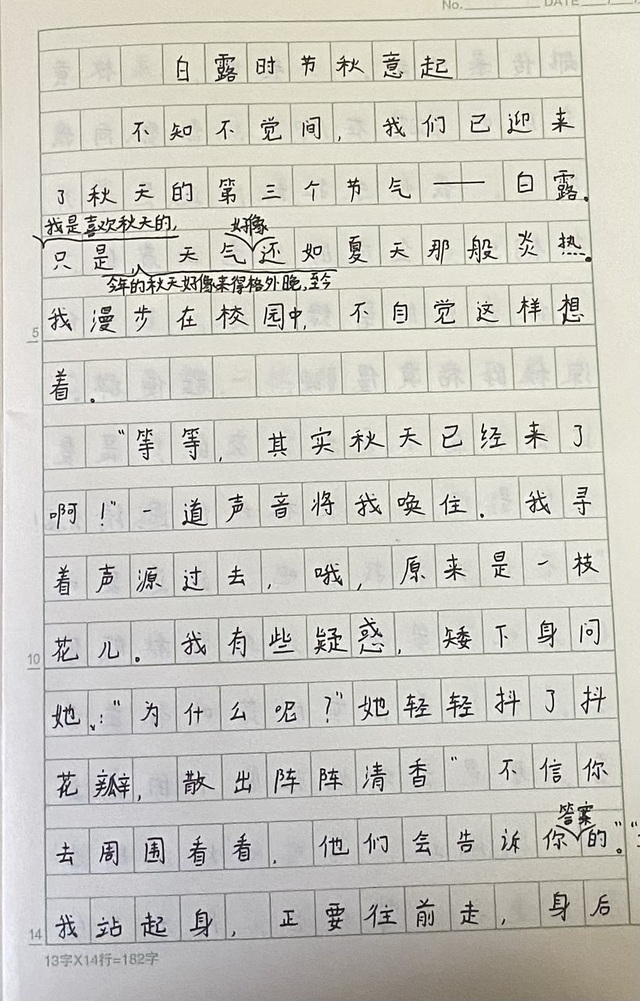 No. DATE
白露时节秋意起
不知不觉间，我们已迎来
了秋天的第三个节气——白露。
我是喜欢秋天的，好像
只是天气还如夏天那般炎热。
今年的秋天好像来得格外晚，至今
5 我漫步在校园中，不自觉这样想
着。
“等等，其实秋天已经来了
啊！”一道声音将我唤住。我寻
着声源过去，哦，原来是一枝
10 花儿。我有些疑惑，矮下身问
她：“为什么呢？”她轻轻抖了抖
花瓣，散出阵阵清香“不信你
答案
去周围看看，他们会告诉你的。”
14 我站起身，正要往前走，身后
13字X14行=182字